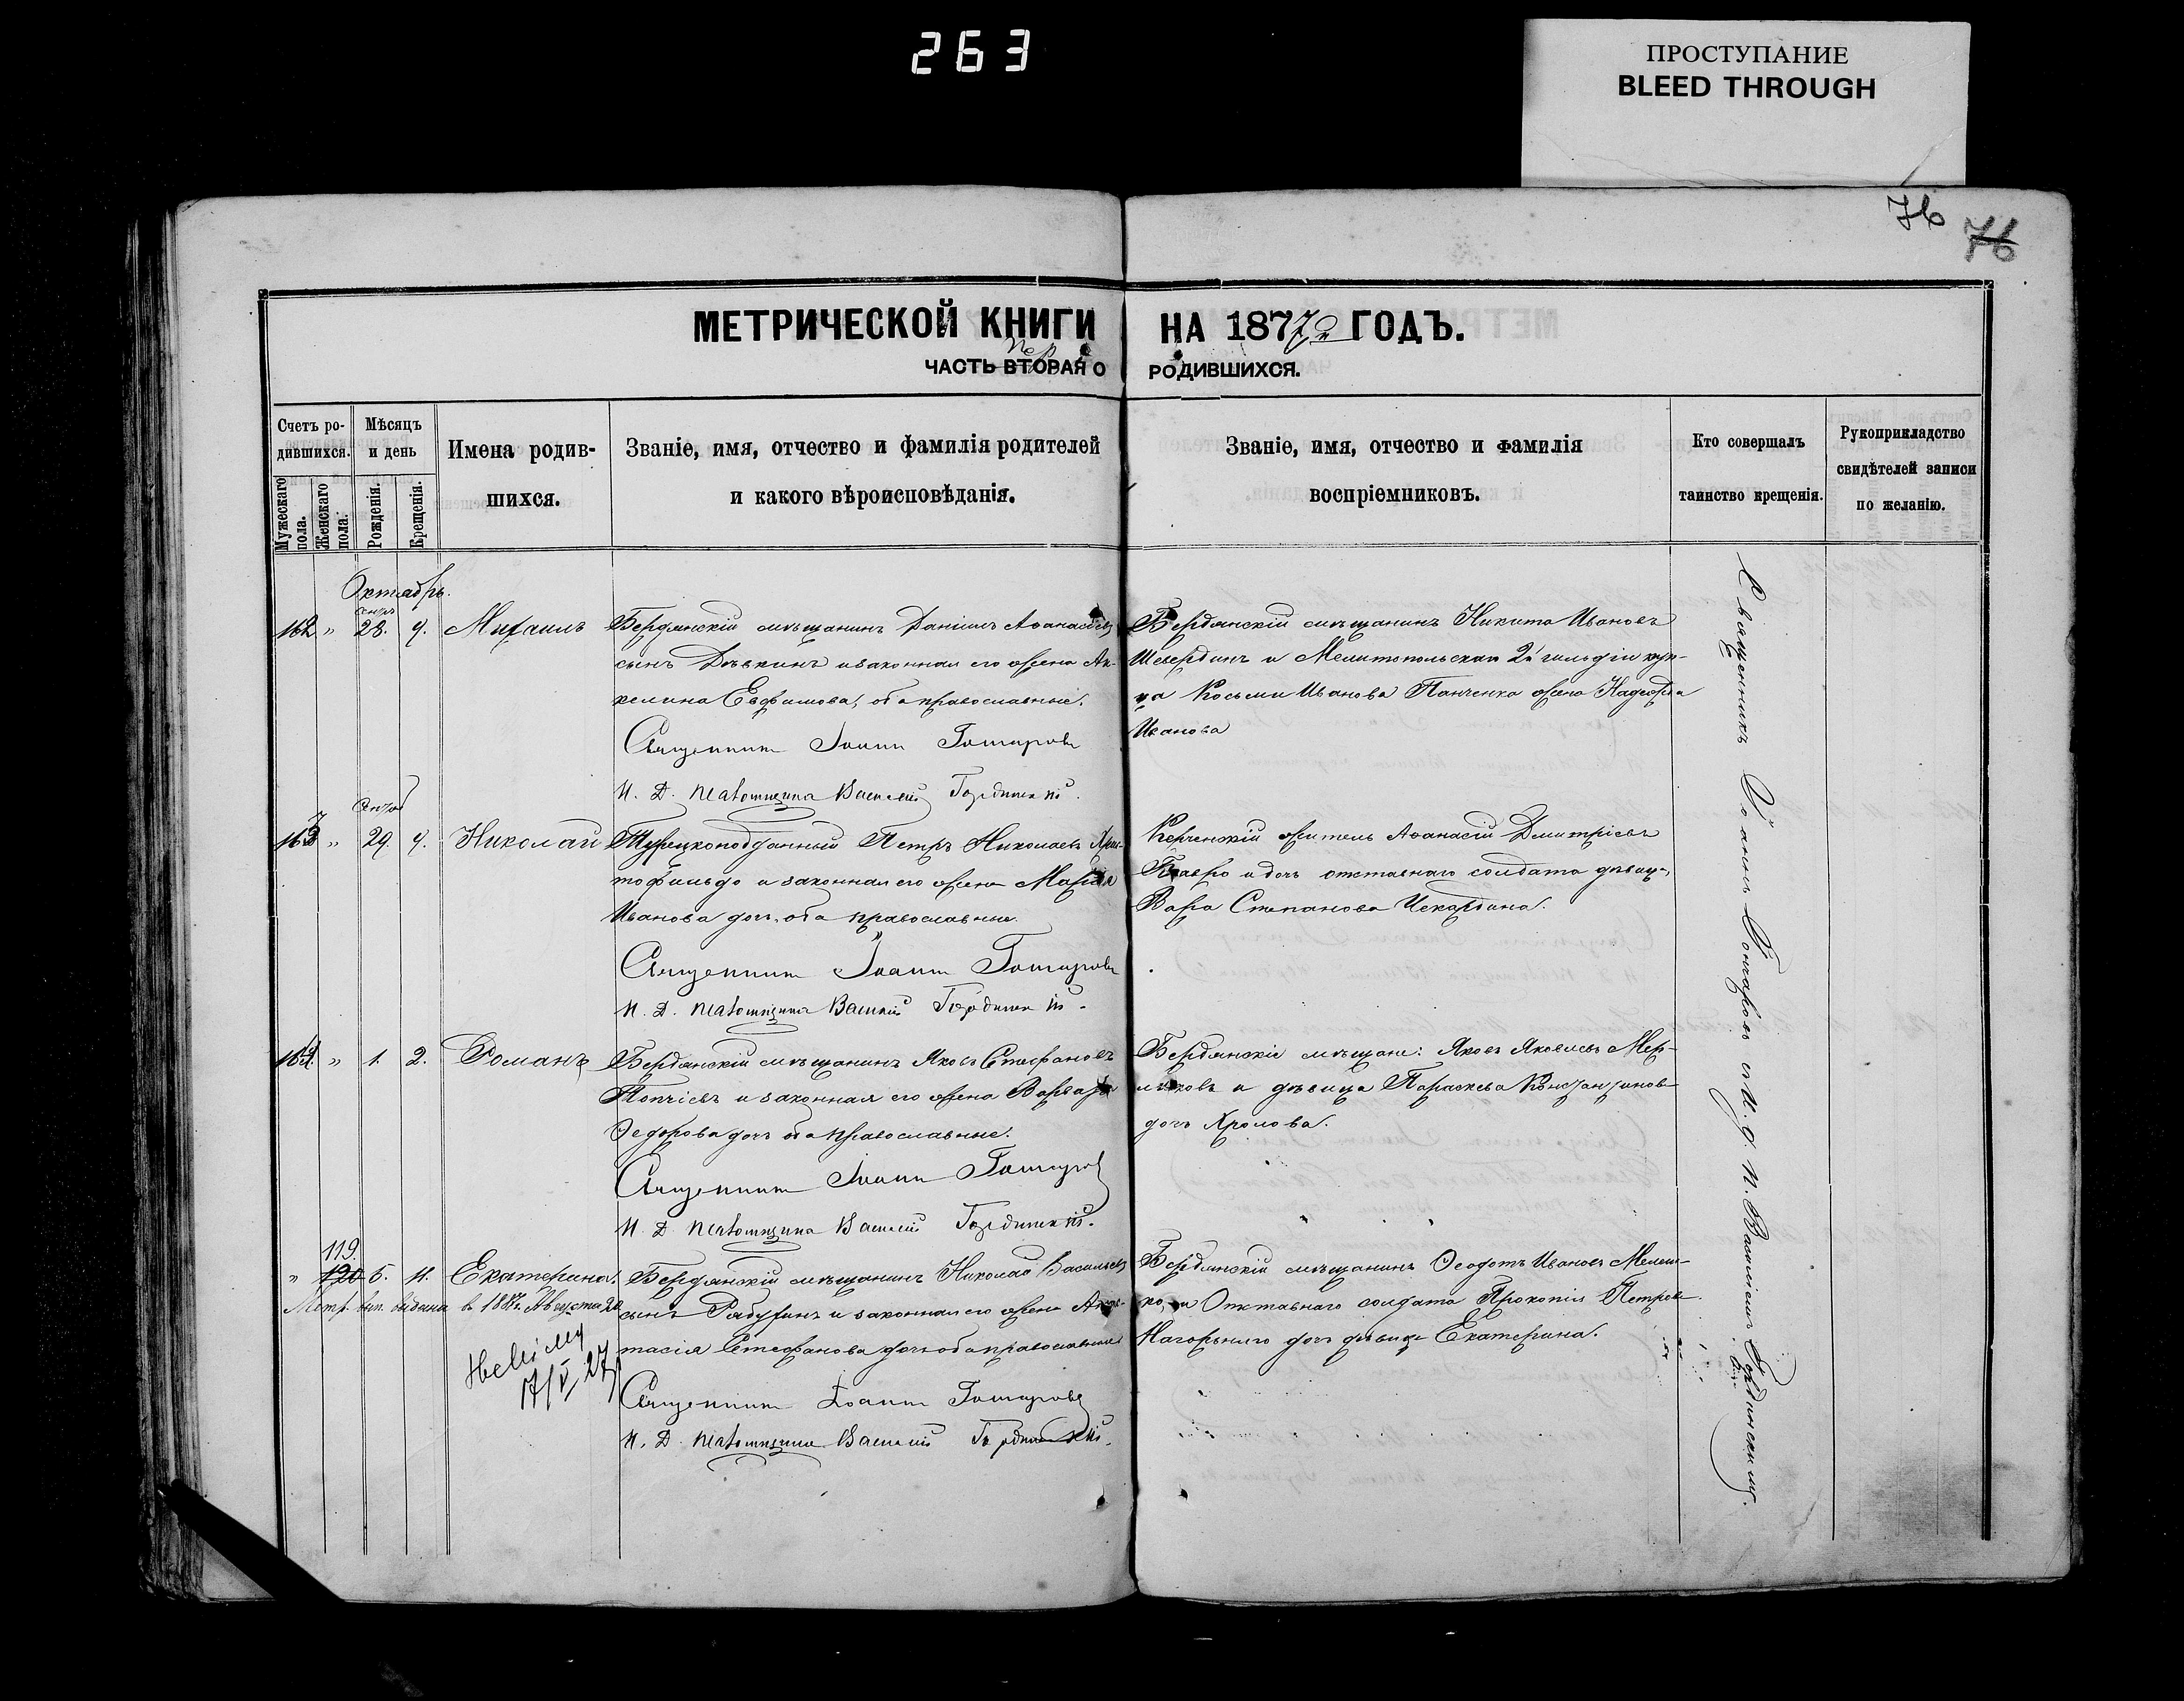 263
ПРОСТУПАНИЕ
BLEED THROUGH
76
76
МЕТРИЧЕСКОЙ КНИГИ НА 1877 ГОДЪ.
ЧАСТЬ ВТОРАЯ О РОДИВШИХСЯ.
Счетъ ро-
дившихся.
Мужескаго пола.
Женскаго пола.
Мѣсяцъ
и день
Рожденія.
Крещенія.
Имена родив-
шихся.
Званіе, имя, отчество и фамилія родителей
и какого вѣроисповѣданія.
Званіе, имя, отчество и фамилія
воспріемниковъ.
Кто совершалъ
таинство крещенія.
Рукоприкладство
свидѣтелей записи
по желанію.
Октябрь.
162 " 28. 9. Михаилъ
Бердянскій мѣщанинъ Даніилъ Аѳанасіевъ
сынъ Дѣвкинъ и законная его жена Ак-
килина Евфимова, оба православные.
Священникъ Іоаннъ Гончаровъ
И. Д. псаломщика Василій Гординскій.
Бердянскій мѣщанинъ Никита Ивановъ
Шевердинъ и Мелитопольскаго 2й гильдіи куп-
ца Косьмы Иванова Панченка жена Надежда
Иванова
163 " 29. 9. Николай
Турецкоподданный Петръ Николаевъ Хрис-
тофильдо и законная его жена Марія
Иванова дочь, оба православные.
Священникъ Іоаннъ Гончаровъ
И. Д. псаломщика Василій Гординскій.
Керченскій житель Аѳанасій Дмитріевъ
и дочь отставнаго солдата дѣвица
Вара Степанова Чекардина.
164. " 1. 2. Романъ
Бердянскій мѣщанинъ Яковъ Стефановъ
Попчіевъ и законная его жена Варвара
Ѳедорова дочь оба православные.
Священникъ Іоаннъ Гончаровъ
И. Д. псаломщика Василій Гординскій.
Бердянскіе мѣщане: Яковъ Яковлевъ Мер-
и дѣвица Параскева Константинова
дочь Хромова.
119.
" 120 5. 11. Екатерина.
Бердянскій мѣщанинъ Николай Васильевъ
сынъ Рябухинъ и законная его жена Анас-
тасія Стефанова дочь оба православные
Священникъ Іоаннъ Гончаровъ
И. Д. псаломщика Василій Гординскій.
Бердянскій мѣщанинъ Ѳеодотъ Ивановъ Мелеш-
ко, и Отставнаго солдата Прокопія Петрова
Нагорьняго дочь дѣвица Екатерина.
Метр. вып. выдана в 1887г. Августа 20
17/V 27
Священникъ Іоаннъ Гончаровъ съ И. д. п. Василіемъ Гординскимъ.